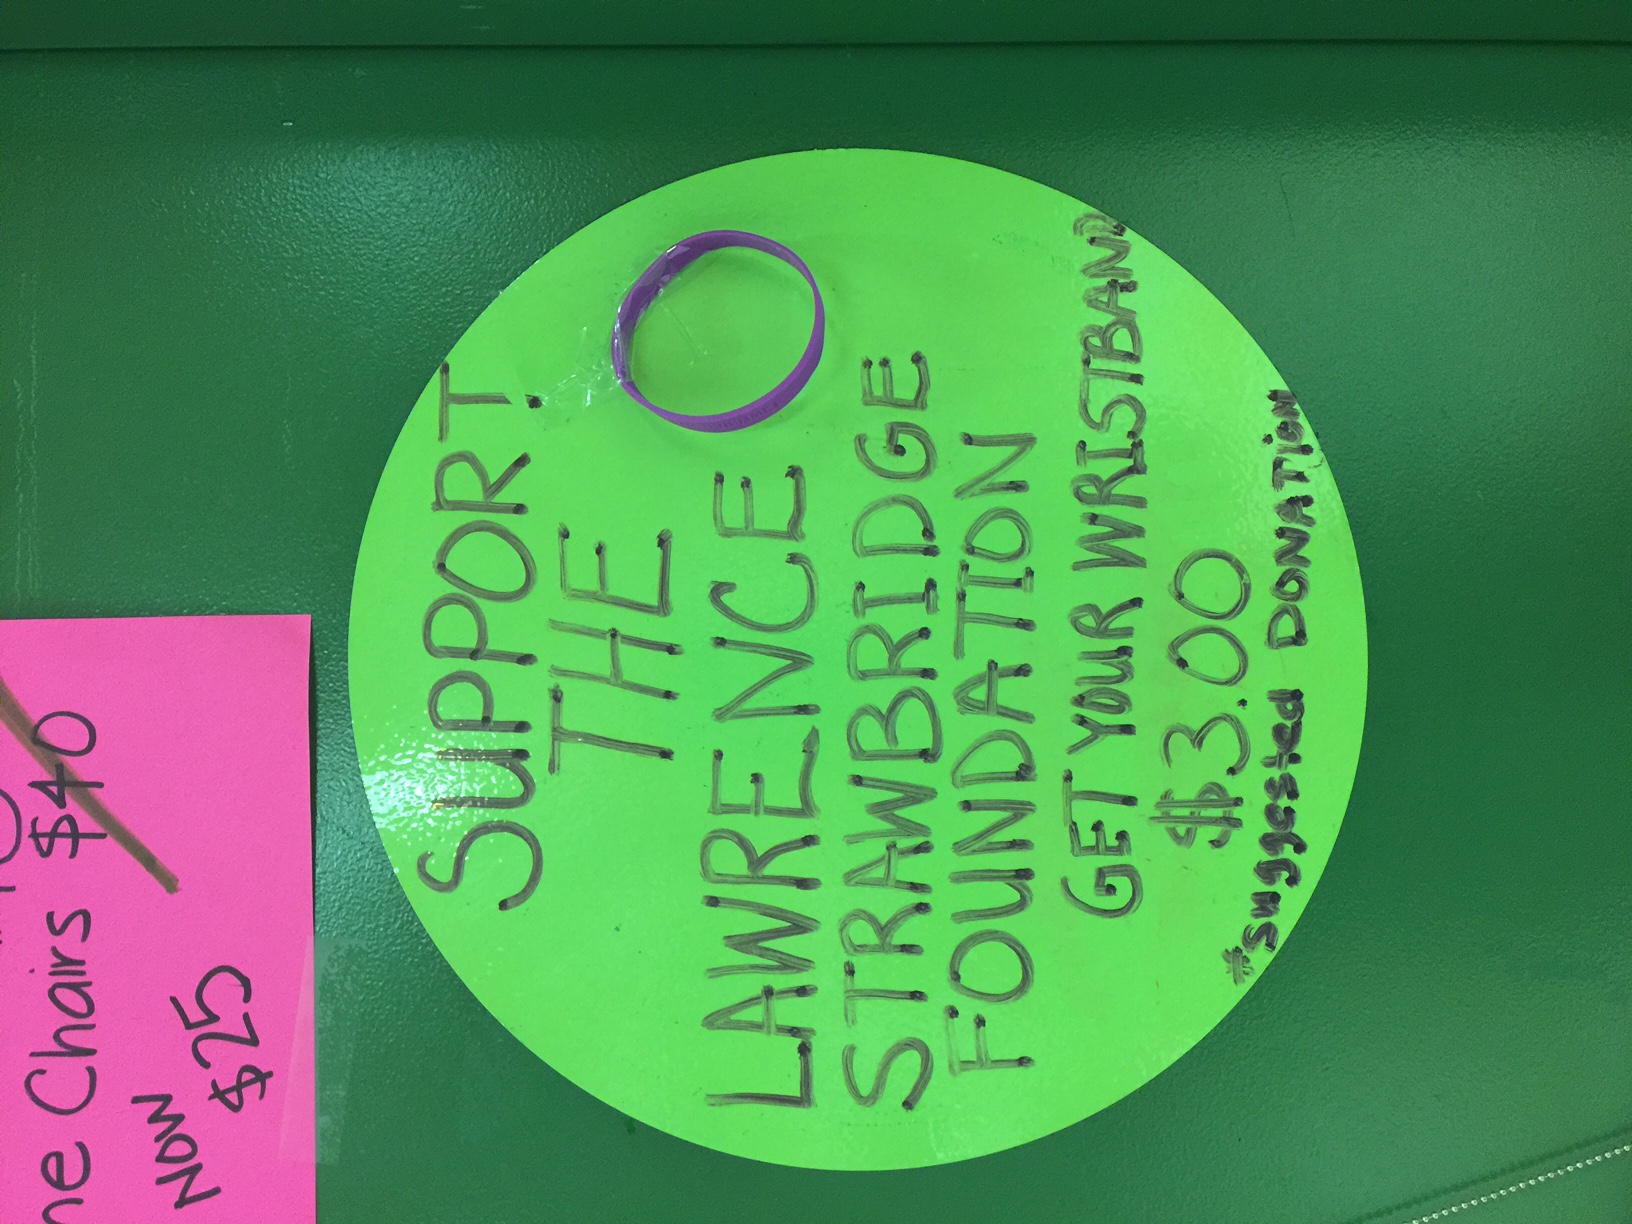 ne Chairs $40
NOW
$25
SUPPORT
THE
LAWRENCE
STRAWBRIDGE
FOUNDATION
GET YOUR WRISTBAND
$3.00
*Suggested DONATION